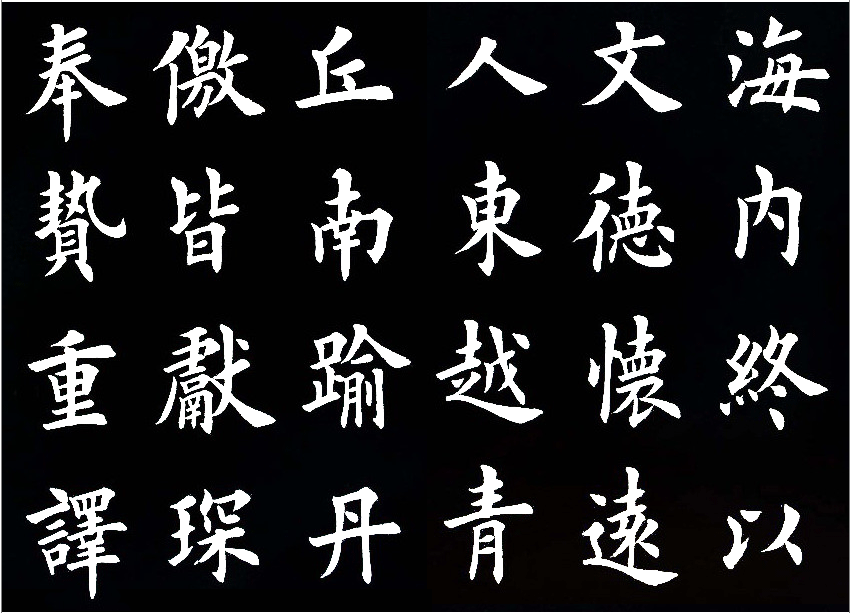 海内終以
文徳懷遠
人東越青
丘南踰丹
儌皆獻琛
奉贄重譯